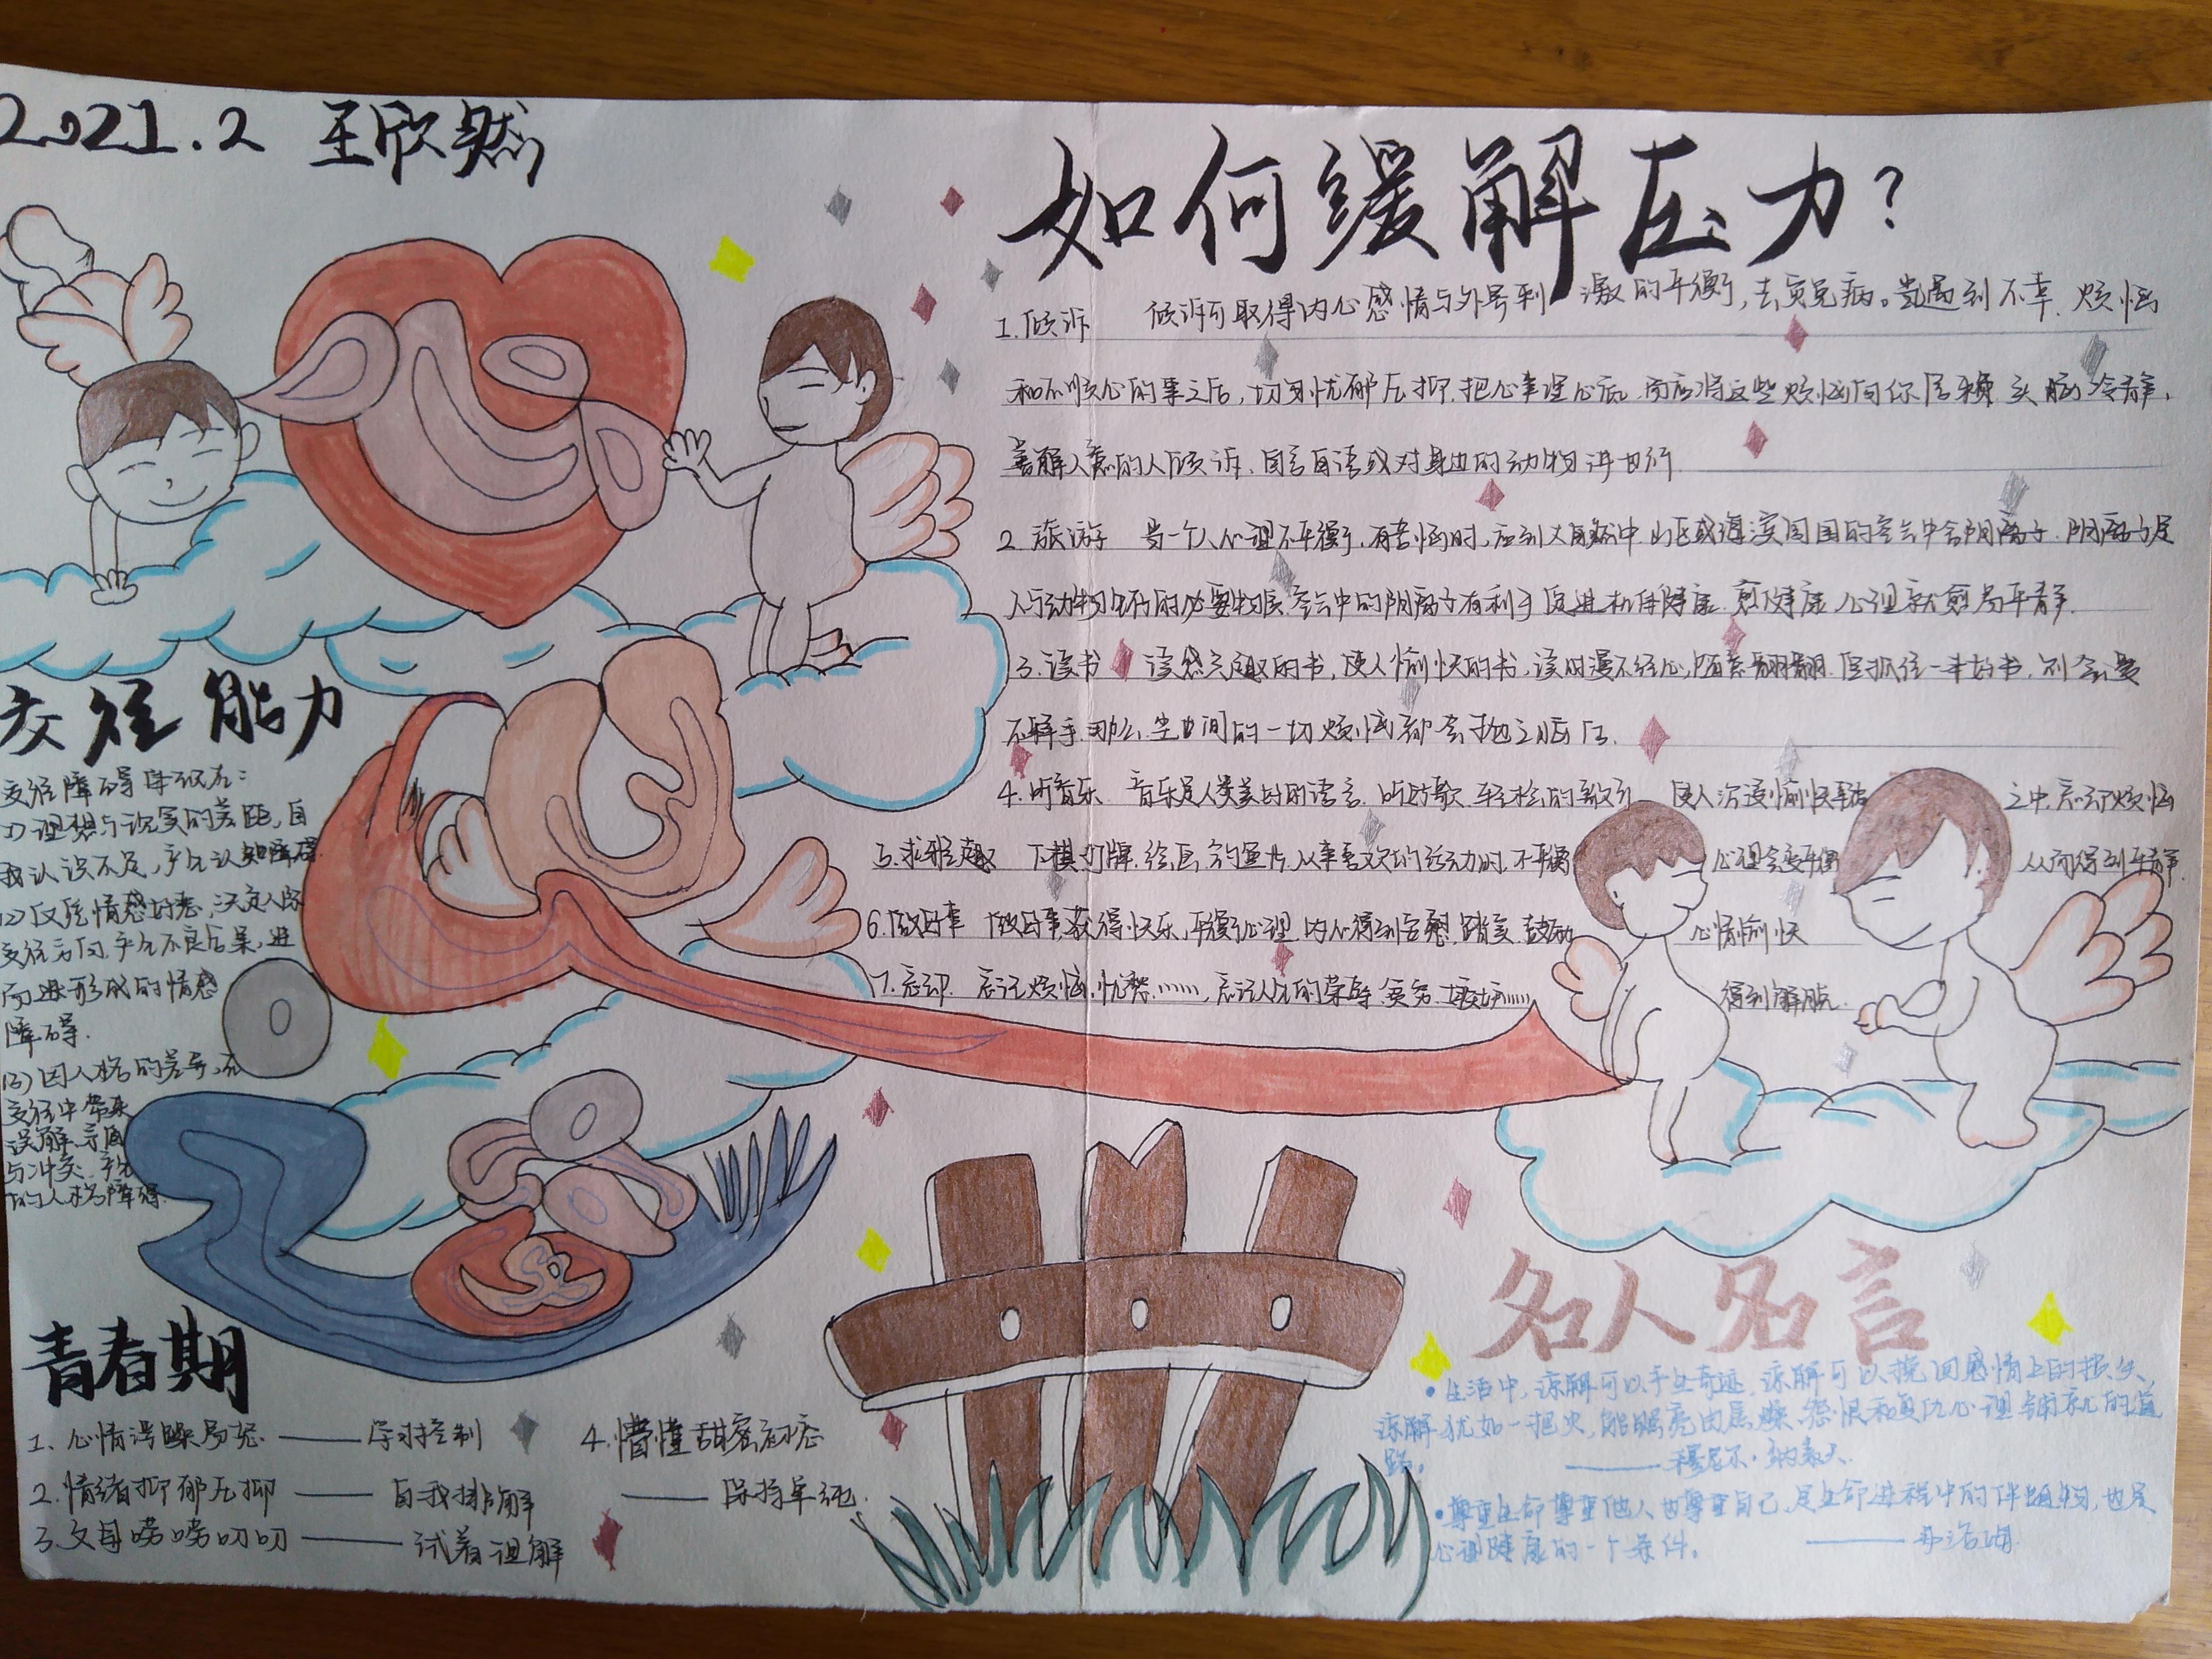 2021.2 王欣然
如何缓解压力?
1.倾诉 倾诉可取得内心感情与外界刺激的平衡,去灾免病。当遇到不幸、烦恼
和不顺心的事之后,切勿忧郁压抑,把心事埋心底,而应将这些烦恼向你信赖、头脑冷静、
善解人意的人倾诉,自言自语或对身边的动物讲也行.
2.旅游 当一个人心理不平衡,有苦恼时,应到大自然中.山区或海滨周围的空气中含阴离子.阴离子是
人与动物生存的必要物质.空气中的阴离子有利于促进机体健康.愈健康心理就愈易平静.
3.读书 读感兴趣的书,使人愉快的书,读时漫不经心,随意翻翻.但抓住一本好书,则会爱
不释手.那么,尘世间的一切烦恼都会抛之脑后.
4.听音乐 音乐是人类美好的语言.听好歌、轻松的歌 使人沉浸愉快 之中,忘却烦恼
5.求雅趣 下棋、打牌、绘画、 从事喜欢的活动时,不平衡 心理会变平衡 从而得到平静.
6.做好事 做好事,获得快乐,平衡心理.内心得到安慰,踏实、鼓励 心情愉快
7.忘却 忘记烦恼、忧愁……,忘记人生的荣辱、 得到解脱.
交往能力
交往障碍体现在:
(1)理想与现实的差距,自
我认识不足,产生认知障碍.
(2)仅凭情感好恶,决定人际
交往方向,产生不良后果,进
而进形成的情感
障碍.
(3)因人格的差异,在
交往中带来
误解、矛盾
与冲突,产生
的人格障碍.
青春期
1.心情浮躁易怒——学习控制
2.情绪抑郁压抑——自我排解
3.父母唠唠叨叨——试着理解
4.懵懂甜蜜初恋
——保持单纯.
名人名言
•生活中,谅解可以产生奇迹,谅解可以挽回感情上的损失,
谅解犹如一把火,能照亮由焦躁、怨恨和复仇心理铺就的道
路。 ——穆尼尔·纳素夫.
•尊重生命、尊重他人也尊重自己,是生命进程中的伴随物,也是
心理健康的一个条件。 ——弗洛姆